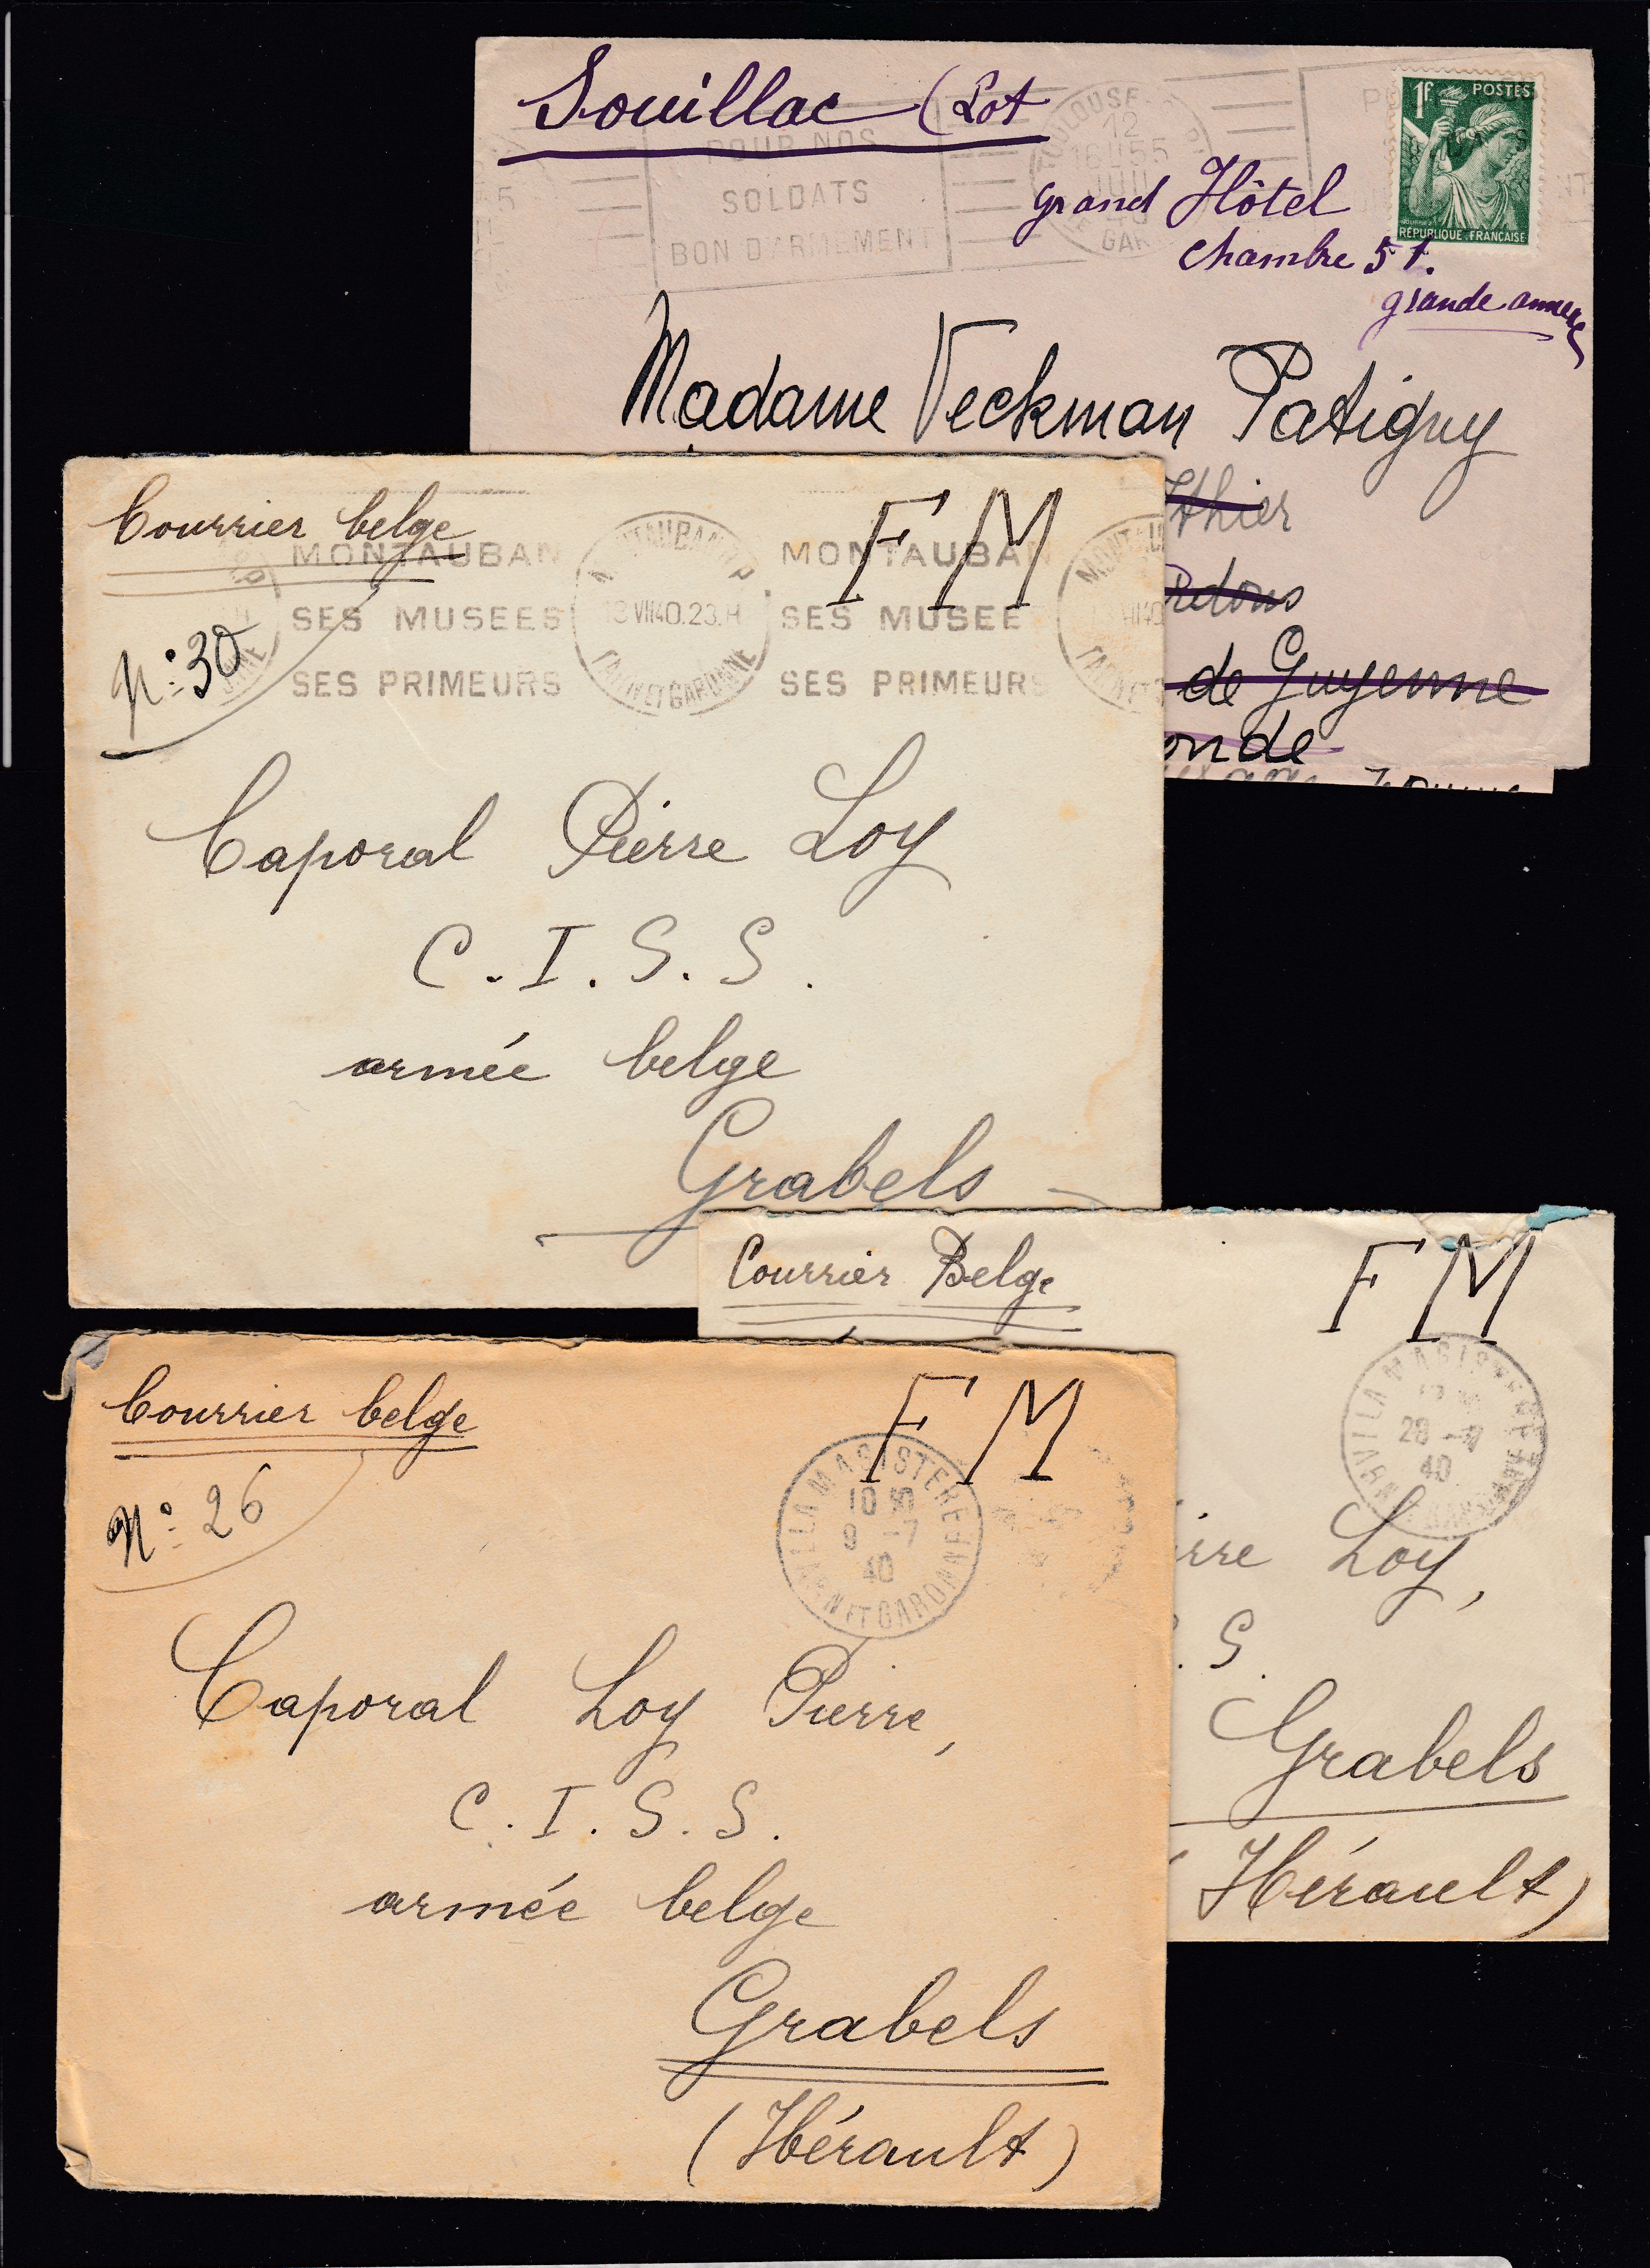 Souillac (Lot
POUR NOS
SOLDATS
BON D'ARMEMENT
TOULOUSE
12
16H55
JUIL
GAR
1F. POSTES
RÉPUBLIQUE FRANÇAISE
grand Hôtel
chambre 51.
grande annexe
Madame Veckman Patigny
thier
de Guyenne
onde
Courrier belge
FM
N°: 30
MONTAUBAN
SES MUSEES
SES PRIMEURS
MONTAUBAN R.P.
VII40.23.H
TARN ET GARONNE
MONTAUBA
SES MUSEE
SES PRIMEURS
MONTAU
Caporal Pierre Loy
C.I.S.S.
armée belge
Grabels
Courrier Belge
FM
LA MAGISTERE
28 -7
40
irre Loy,
. S.
Grabels
(Hérault)
Courrier belge
FM
N°: 26
LA MAGISTERE
10 30
9 -7
40
TARN ET GARONNE
Caporal Loy Pierre,
C.I.S.S.
armée belge
Grabels
(Hérault)